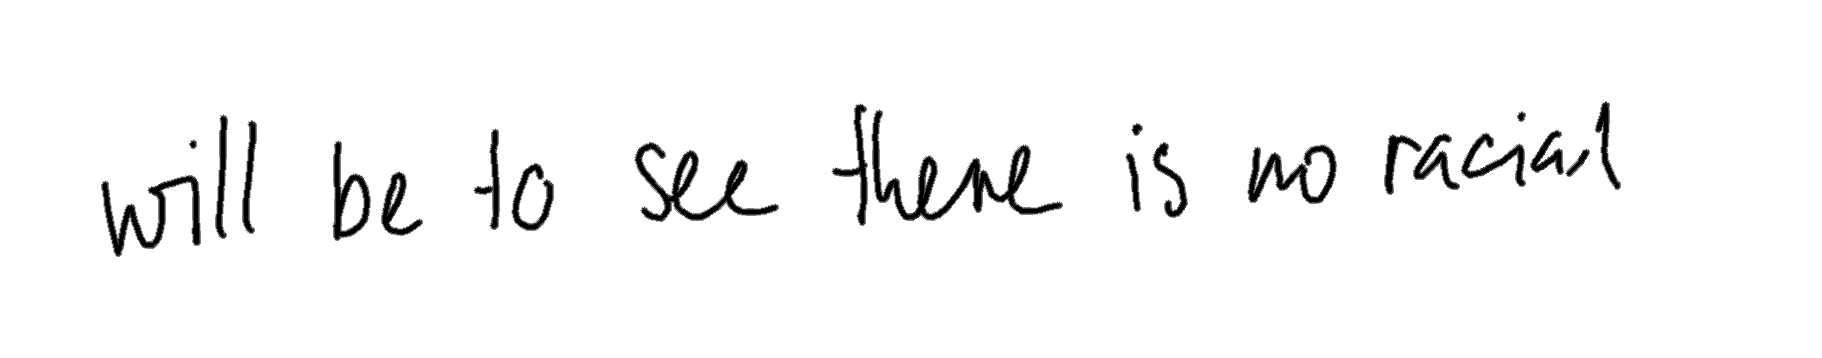 will be to see there is no racial